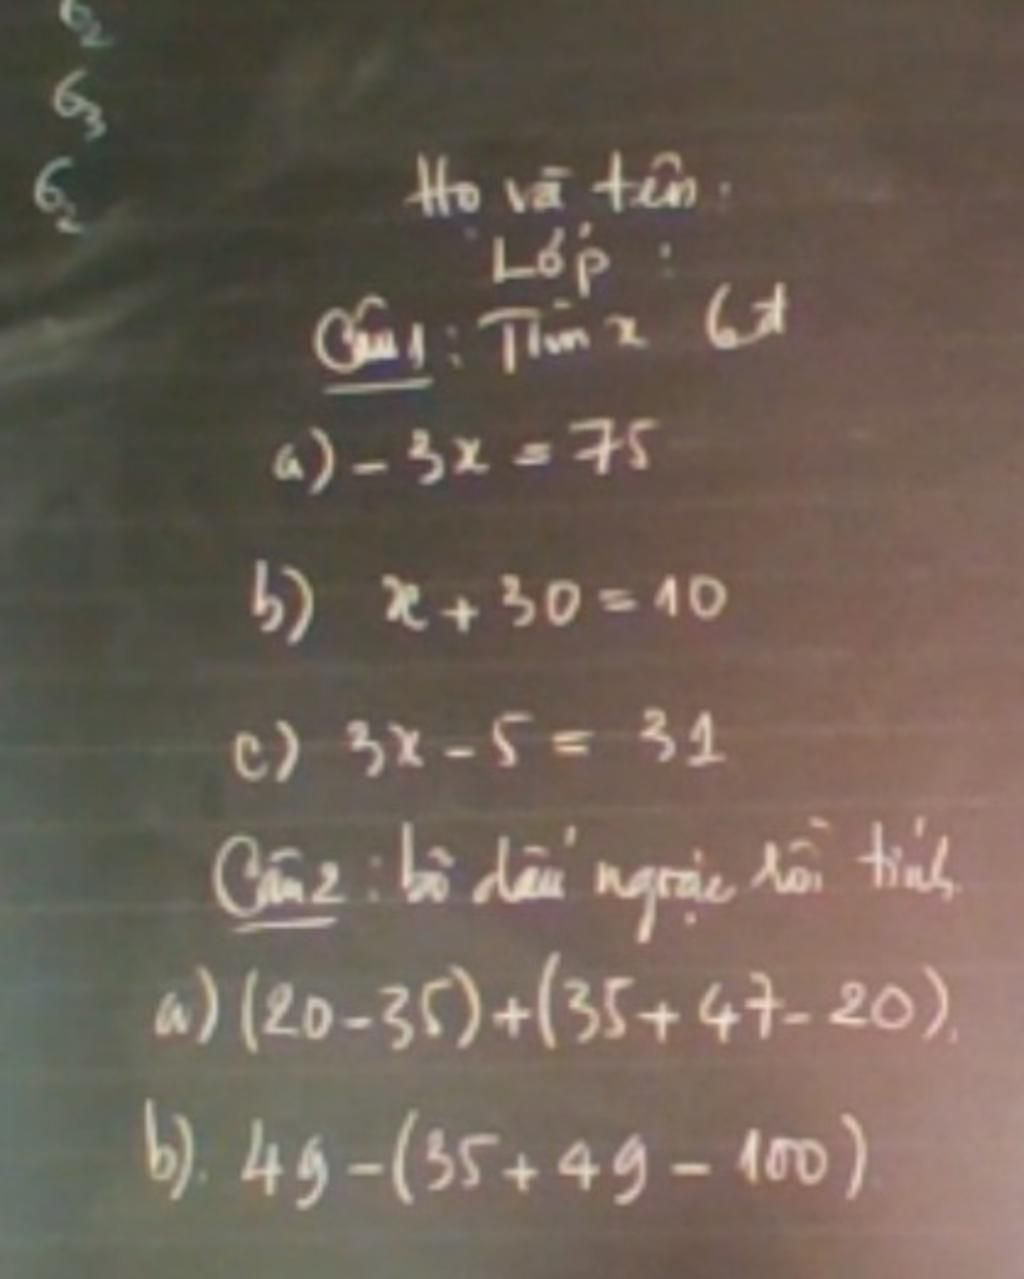 6₂
6₃
6₂
Họ và tên:
Lớp :
Câu 1: Tìm x 6đ
a) - 3x = 75
b) x + 30 = 10
c) 3x - 5 = 31
Câu 2: bỏ dấu ngoặc rồi tính
a) (20-35)+(35+47-20).
b). 49-(35+49-100)